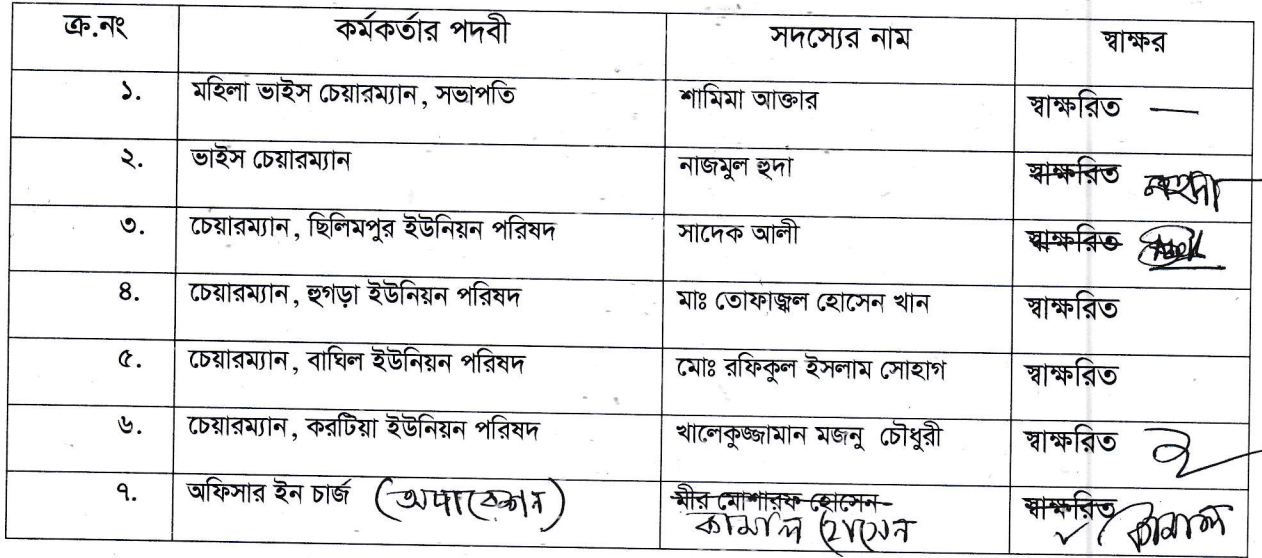 ক্র.নং কর্মকর্তার পদবী সদস্যের নাম স্বাক্ষর
১. মহিলা ভাইস চেয়ারম্যান, সভাপতি শামিমা আক্তার স্বাক্ষরিত —
২. ভাইস চেয়ারম্যান নাজমুল হুদা স্বাক্ষরিত
৩. চেয়ারম্যান, ছিলিমপুর ইউনিয়ন পরিষদ সাদেক আলী স্বাক্ষরিত
৪. চেয়ারম্যান, হুগড়া ইউনিয়ন পরিষদ মাঃ তোফাজ্জল হোসেন খান স্বাক্ষরিত
৫. চেয়ারম্যান, বাঘিল ইউনিয়ন পরিষদ মোঃ রফিকুল ইসলাম সোহাগ স্বাক্ষরিত
৬. চেয়ারম্যান, করটিয়া ইউনিয়ন পরিষদ খালেকুজ্জামান মজনু চৌধুরী স্বাক্ষরিত
৭. অফিসার ইন চার্জ (অপারেশন) মীর মোশারফ হোসেন স্বাক্ষরিত
কামাল হোসেন কামাল